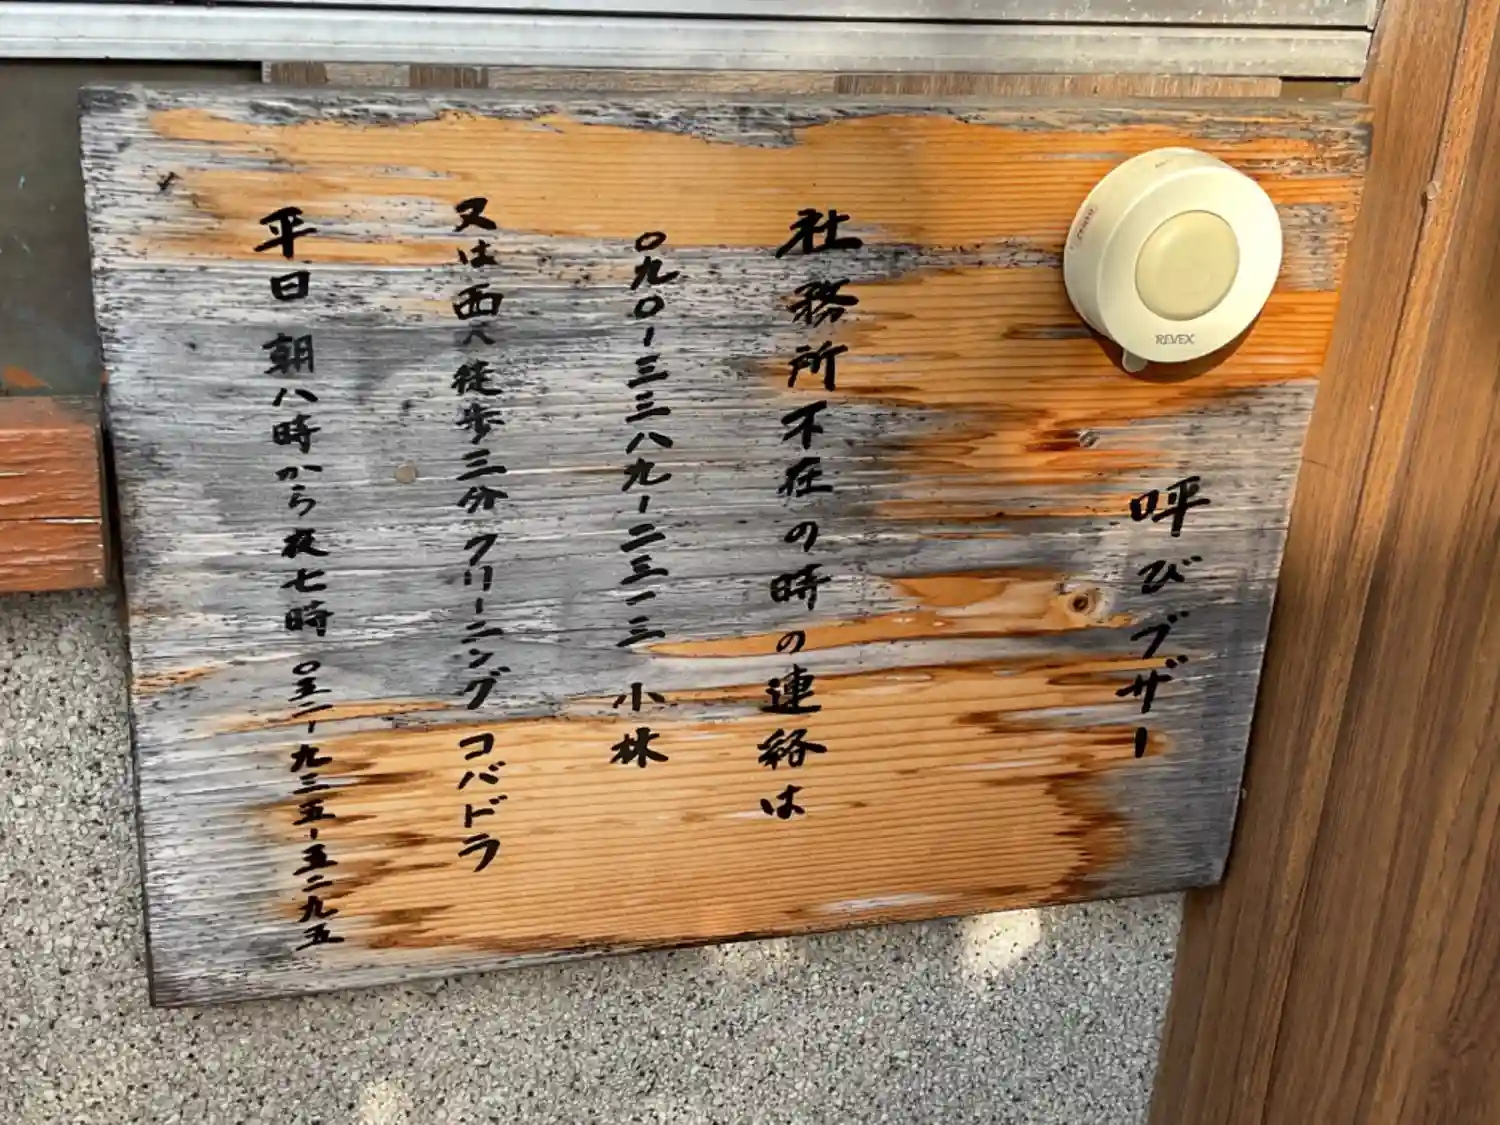 呼びブザー
REVEX
社務所不在の時の連絡は
〇九〇-三三八九-二三一三 小林
又は西へ徒歩三分 クリーニング コバドラ
平日 朝八時から夜七時 〇五二-九三五-五二九五